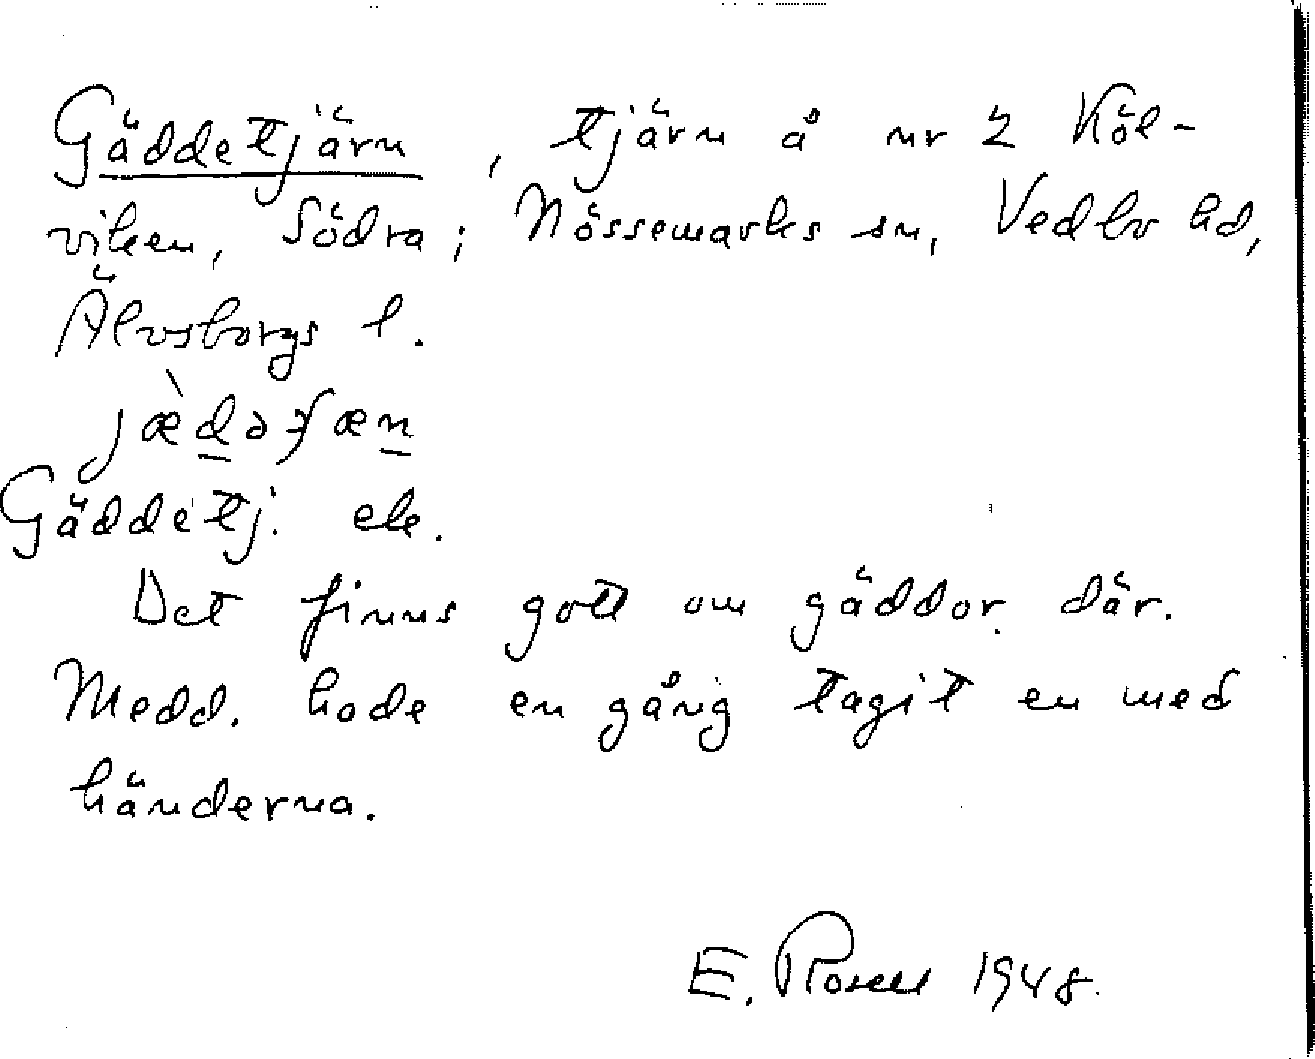 Gäddetjärn, tjärn å nr 2 Köl-
viken, Södra; Nössemarks sn, Vedbo hd,
Älvsborgs l.
Gäddetj. ek.
Det finns gott om gäddor där.
Medd. hade en gång tagit en med
händerna.
E. Rosell 1948.